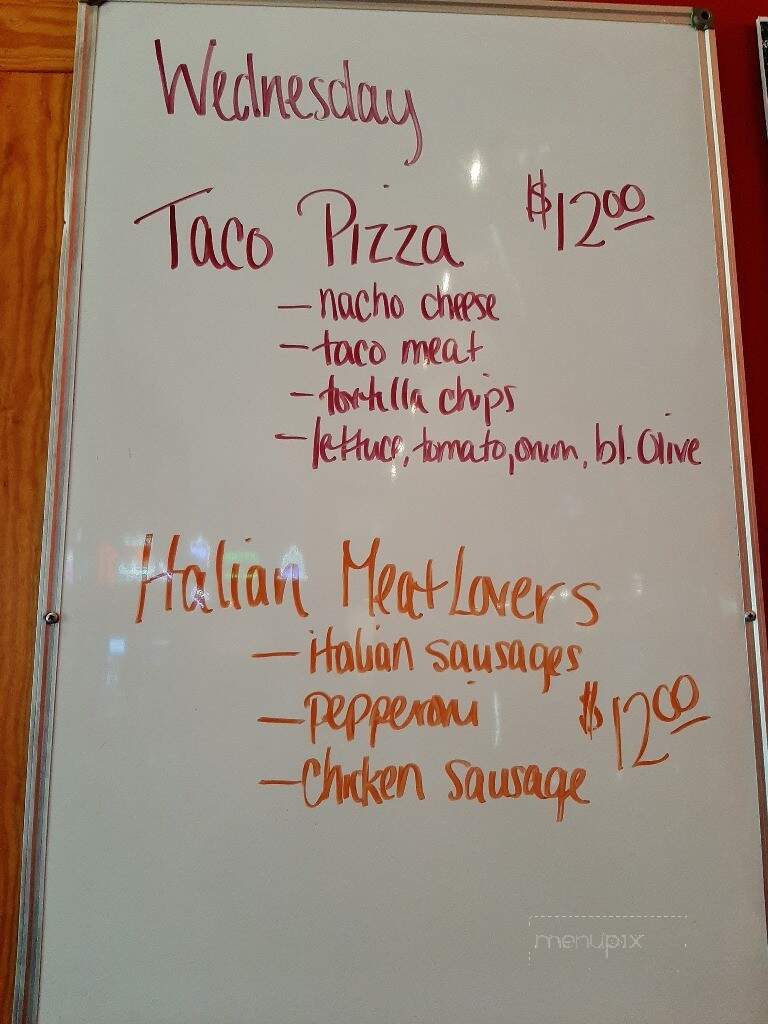 Wednesday
Taco Pizza $12.00
- nacho cheese
- taco meat
- tortilla chips
- lettuce, tomato, onion, bl. Olive
Italian Meat Lovers
- italian sausages
- pepperoni $12.00
- Chicken sausage
menupix